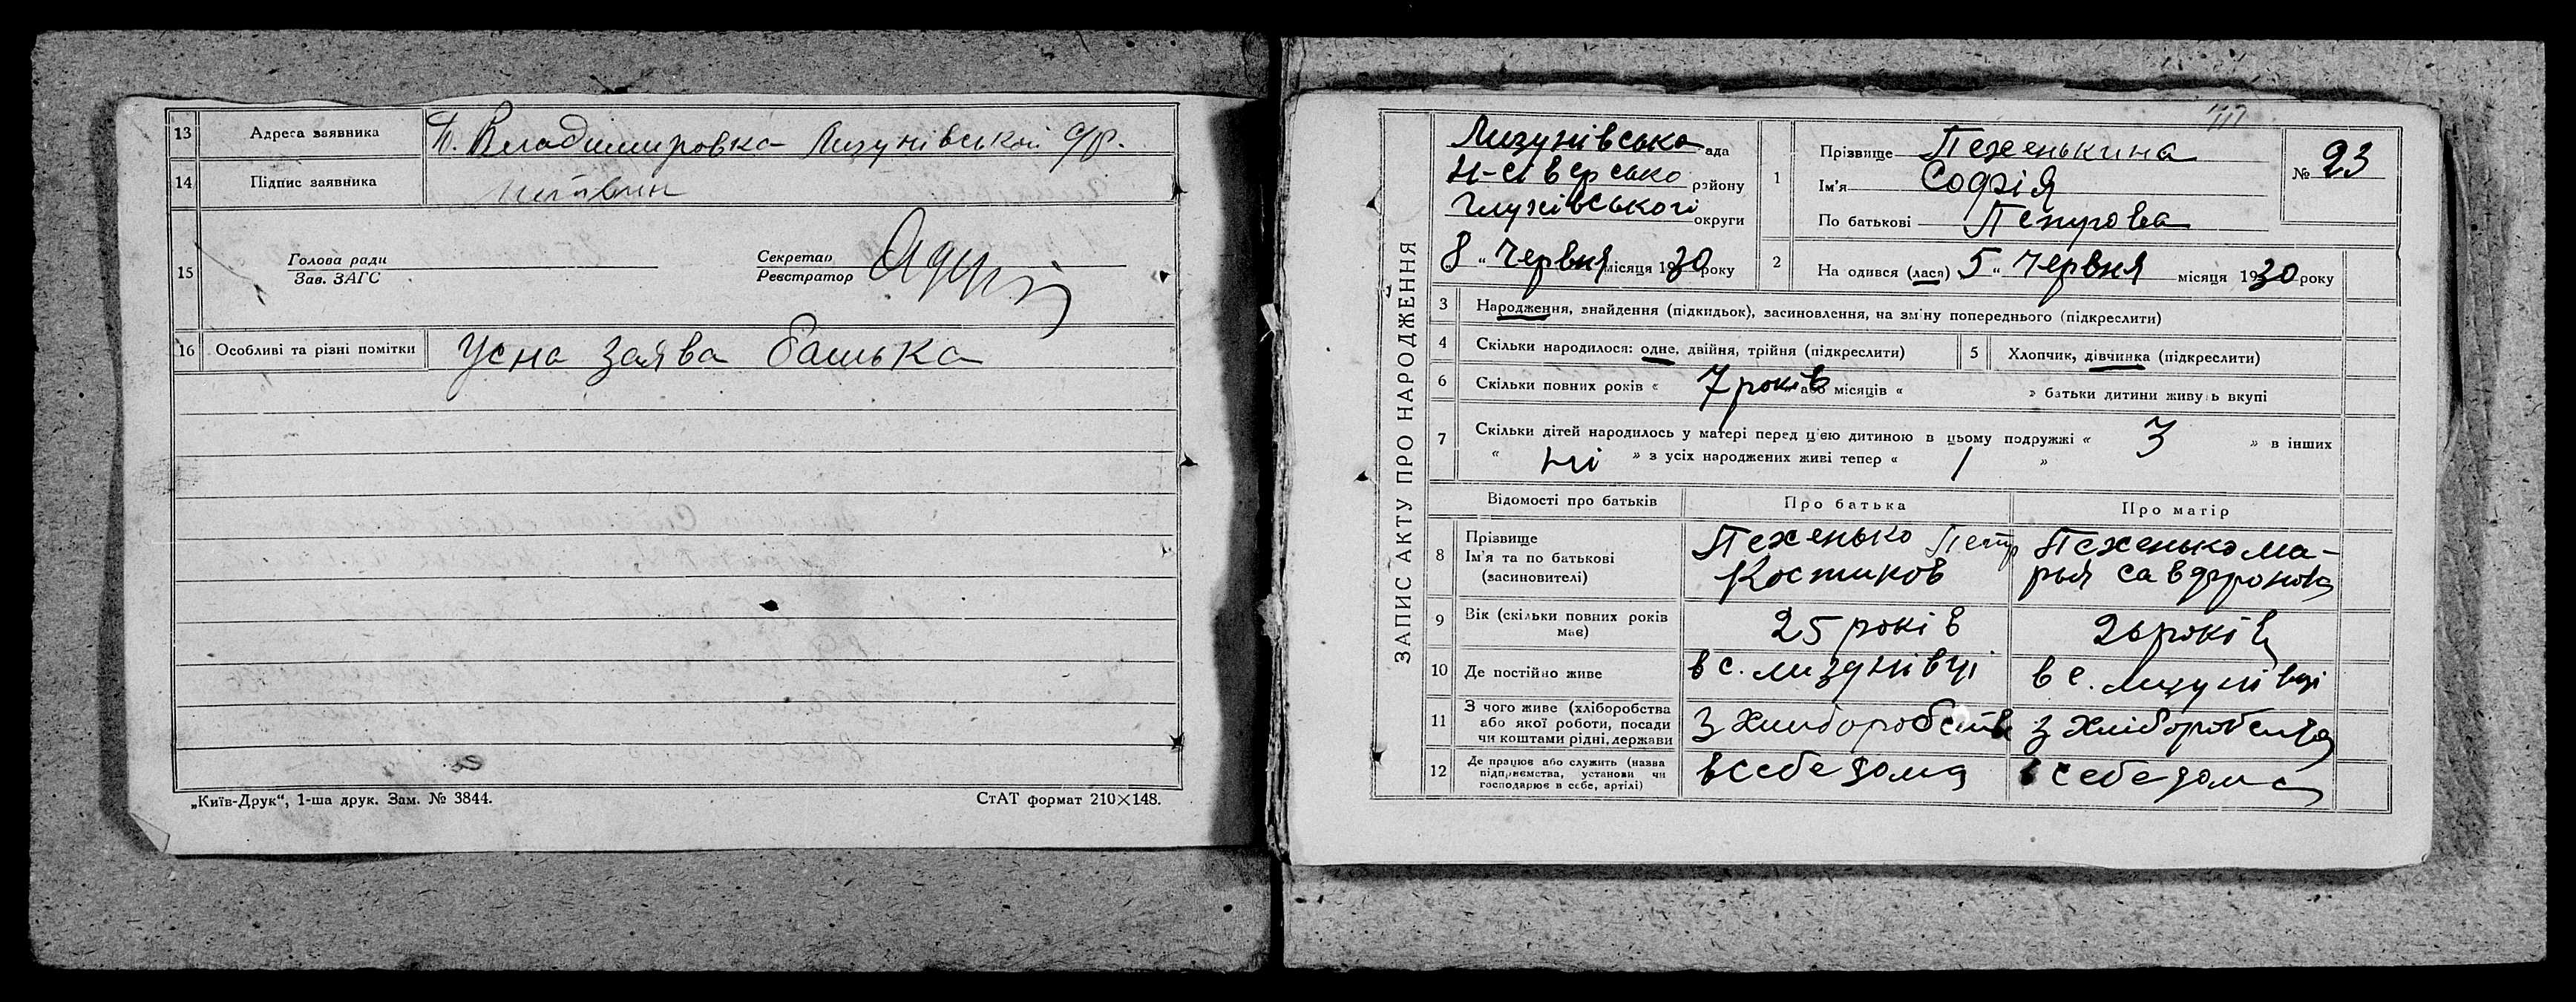 13 Адреса заявника П. Владимировка Лизунівськой с/р.
14 Підпис заявника Литвин
15 Голова ради
Зав. ЗАГС
Секретар
Реєстратор
16 Особливі та різні помітки Усна заява батька
„Київ-Друк“, 1-ша друк. Зам. № 3844. СтАТ формат 210×148.
ЗАПИС АКТУ ПРО НАРОДЖЕННЯ
Лизунівська ада
Н-Сіверсько району
Глухівського округи
8 „ Червня місяця 1930 року
1 Прізвище Пехенькина
Ім'я Софія
По батькові Петрова
№ 23
2 На одився (лася) 5 „ Червня місяця 1930 року
3 Народження, знайдення (підкидьок), засиновлення, на зміну попереднього (підкреслити)
4 Скільки народилося: одне, двійня, трійня (підкреслити) 5 Хлопчик, дівчинка (підкреслити)
6 Скільки повних років « 7 років або місяців « » батьки дитини живуть вкупі
7 Скільки дітей народилось у матері перед цією дитиною в цьому подружжі « 3 » в інших
« ні » з усіх народжених живі тепер « 1 »
Відомості про батьків Про батька Про матір
8 Прізвище
Ім'я та по батькові
(засиновителі)
Пехенько Петр
Костиков
Пехенько Ма-
рья Савфронова
9 Вік (скільки повних років
має)
25 років
26 років
10 Де постійно живе в с. Лизунівці в с. Лизунівці
11 З чого живе (хліборобства
або якої роботи, посади
чи коштами рідні, держави
З Хліборобства
З Хліборобства
12 Де працює або служить (назва
підприємства, установи чи
господарює в себе, артілі)
в себе дома
в себе дома